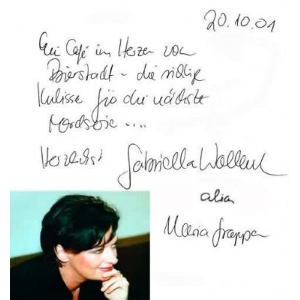 20.10.01
Ein Café im Herzen von
Bierstadt - die richtige
Kulisse für die nächste
Mordserie ....
Herzlichst Gabriella Wollenh
alias
Maria Grappa